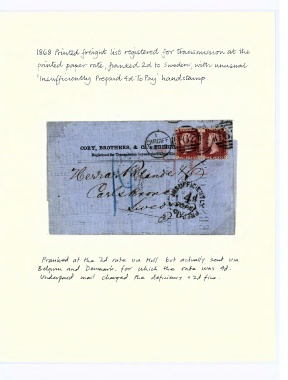 1868 Printed freight list registered for transmission at the
printed paper rate, franked 2d to Sweden, with unusual
'Insufficiently Prepaid 4d To Pay' handstamp
CORY, BROTHERS, & Co.'s
Registered for Transmission
CARDIFF
Carlskrona
Sweden
INSUFFICIENTLY
PREPAID
Franked at the 2d rate via Hull but actually sent via
Belgium and Denmark, for which the rate was 4d.
Underpaid mail charged the deficiency + 2d fine.